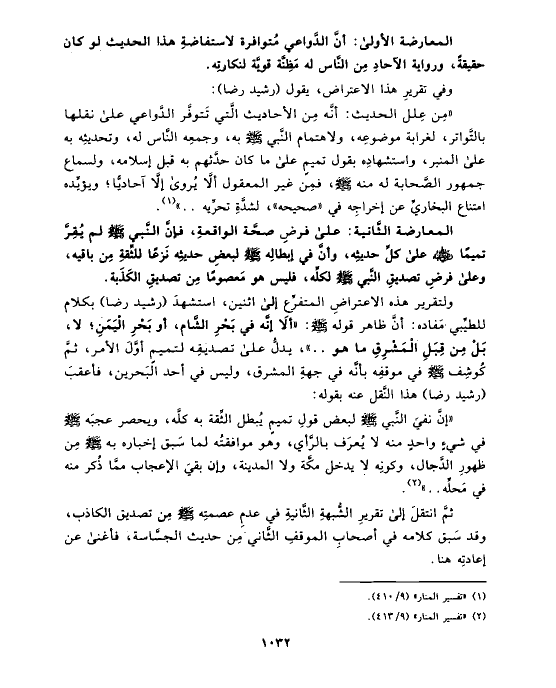 المعارضة الأولىٰ: أنَّ الدَّواعي مُتوافرة لاستفاضةِ هذا الحديث لو كان
حقيقةً، ورواية الآحادِ مِن النَّاس له مَظِنَّة قويَّة لنكارتِه.
وفي تقريرِ هذا الاعتراض، يقول (رشيد رضا):
«مِن عِلل الحديث: أنَّه مِن الأحاديث الَّتي تَتوفَّر الدَّواعي علىٰ نقلها
بالتَّواتر، لغرابة موضوعِه، ولاهتمام النَّبي ﷺ به، وجمعِه النَّاس له، وتحديثِه به
علىٰ المنبر، واستشهادِه بقول تميمٍ علىٰ ما كان حدَّثهم به قبل إسلامه، ولسماع
جمهور الصَّحابة له منه ﷺ، فمِن غير المعقول ألَّا يُروىٰ إلَّا آحاديًّا؛ ويؤيِّده
امتناع البخاريِّ عن إخراجِه في «صحيحه»، لشدَّةِ تحرِّيه ..»(١).
المعارضة الثَّانية: علىٰ فرضِ صحَّة الواقعةِ، فإنَّ النَّبي ﷺ لم يُقِرَّ
تميمًا ﷺ علىٰ كلِّ حديثِه، وأنَّ في إبطالِه ﷺ لبعض حديثِه نَزعًا للثِّقةِ مِن باقيه،
وعلىٰ فرضِ تصديقِ النَّبي ﷺ لكلِّه، فليس هو مَعصومًا مِن تصديقِ الكَذَبة.
ولتقريرِ هذه الاعتراضِ المتفرِّع إلىٰ اثنين، استشهدَ (رشيد رضا) بكلام
للطِّيبي مَفاده: أنَّ ظاهر قوله ﷺ: «ألَا إنَّه في بَحْرِ الشَّام، أو بَحْرِ اليَمَنِ؛ لا،
بَلْ مِن قِبَلِ المَشْرِقِ ما هو ..»، يدلُّ علىٰ تصديقِه لتميمٍ أوَّلَ الأمر، ثمَّ
كُوشِف ﷺ في موقفِه بأنَّه في جهةِ المشرق، وليس في أحد البَحرين، فأعقبَ
(رشيد رضا) هذا النَّقل عنه بقوله:
«إنَّ نفيَ النَّبي ﷺ لبعض قولِ تميمٍ يُبطل الثِّقة به كلِّه، ويحصر عجبَه ﷺ
في شيءٍ واحدٍ منه لا يُعرَف بالرَّأي، وهو موافقتُه لما سَبق إخباره به ﷺ مِن
ظهورِ الدَّجال، وكونِه لا يدخل مكَّة ولا المدينة، وإن بقيَ الإعجاب ممَّا ذُكر منه
في مَحلِّه ..»(٢).
ثمَّ انتقلَ إلىٰ تقريرِ الشُّبهةِ الثَّانية في عدمِ عصمتِه ﷺ مِن تصديق الكاذب،
وقد سَبق كلامه في أصحابِ الموقفِ الثَّاني مِن حديث الجسَّاسة، فأغنىٰ عن
إعادتِه هنا.
(١) «تفسير المنار» (٤١٠/٩).
(٢) «تفسير المنار» (٤١٣/٩).
١٠٣٢